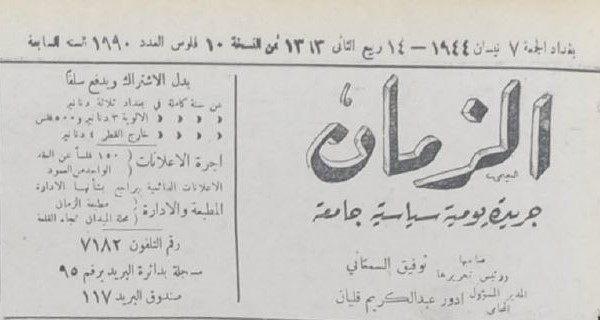 بغداد الجمعة ٧ نيسان ١٩٤٤ – ١٤ ربيع الثاني ١٣٦٣ ثمن النسخة ١٠ فلوس العدد ١٩٩٠ السنة السابعة
الزمان
جريدة يومية سياسية جامعة
صاحبها
ورئيس تحريرها
توفيق السمعاني
المدير المسؤول ادور عبدالكريم قليان
المحامي
بدل الاشتراك ويدفع سلفا
عن سنة كاملة في بغداد ثلاثة دنانير
» » » » الالوية ٣ دنانير و٥٠٠ فلس
» » » » خارج القطر ٤ دنانير
اجرة الاعلانات
١٥٠ فلساً عن العقد
الواحد من العمود
الاعلانات الدائمية يراجع بشأنها الادارة
المطبعة والادارة
مطبعة الزمان
محلة الميدان تجاه القلعة
رقم التلفون ٧١٨٢
مسجلة بدائرة البريد برقم ٩٥
صندوق البريد ١١٧